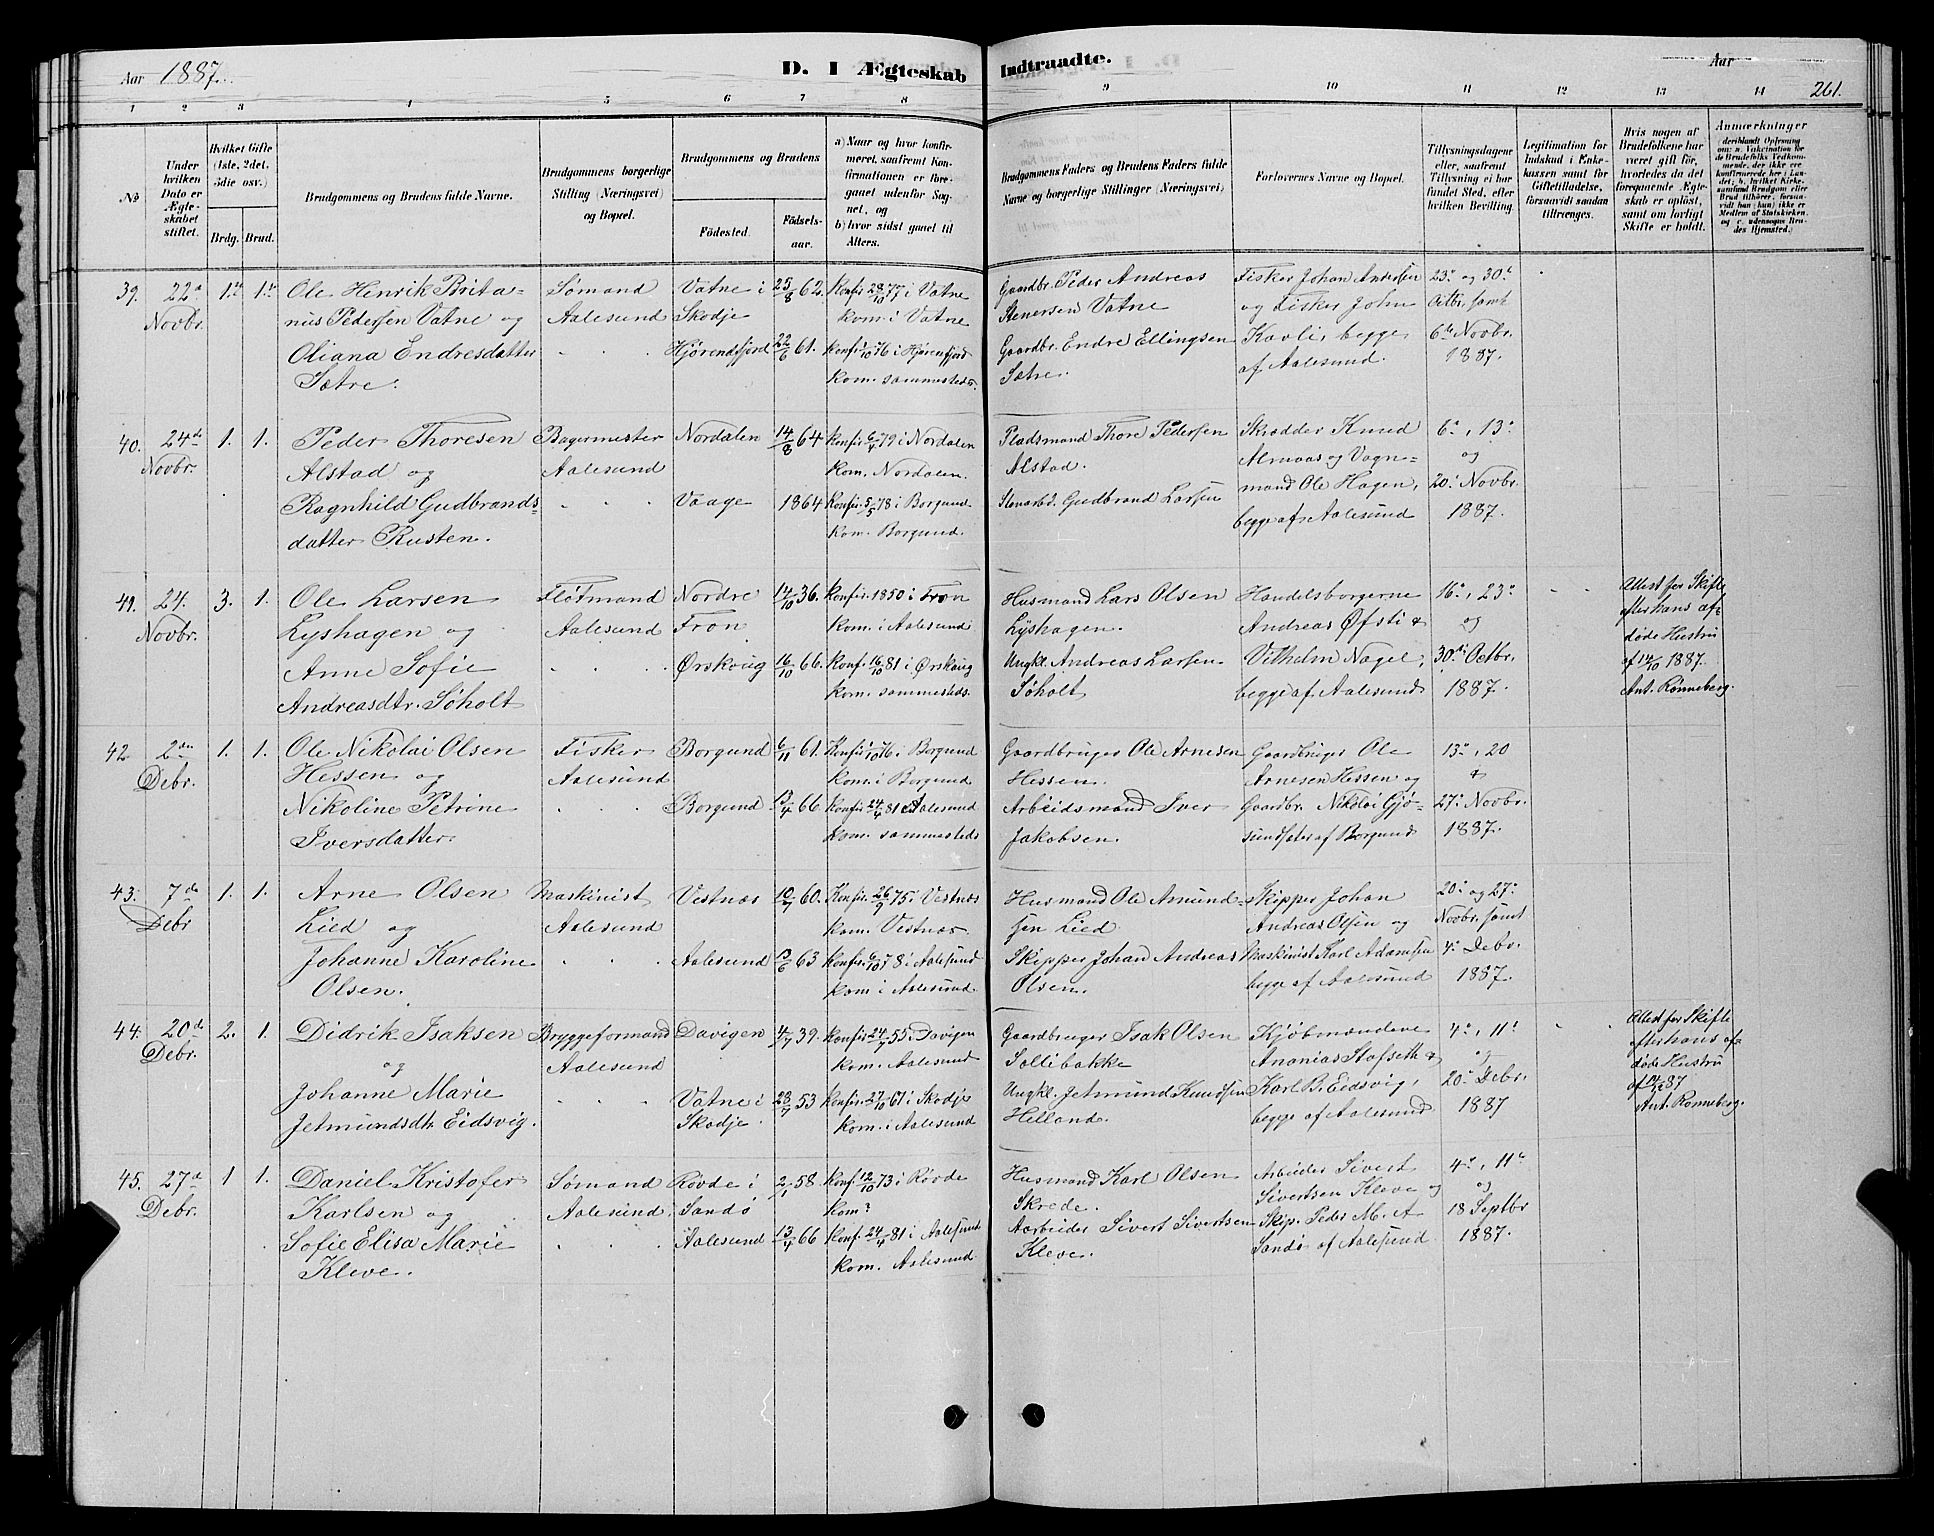 Aar 1887.
D. I Ægteskab Indtraadte.
Aar
261.
1 2 3 4 5 6 7 8 9 10 11 12 13 14
No
Under hvilken Dato er Ægteskabet stiftet.
Hvilket Gifte (1ste, 2det, 3die osv.)
Brdg. Brud.
Brudgommens og Brudens fulde Navne.
Brudgommens borgerlige Stilling (Næringsvei) og Bopæl.
Brudgommens og Brudens
Fødested.
Fødselsaar.
a) Naar og hvor konfirmeret, saafremt Konfirmationen er foregaaet udenfor Sognet, og
b) hvor sidst gaaet til Alters.
Brudgommens Faders og Brudens Faders fulde Navne og borgerlige Stillinger (Næringsvei)
Forlovernes Navne og Bopæl.
Tillysningsdagene eller, saafremt Tillysning ei har fundet Sted, efter hvilken Bevilling.
Legitimation for Indskud i Enkekassen samt for Giftetilladelse, forsaavidt saadan tiltrænges.
Hvis nogen af Brudefolkene har været gift før, hvorledes da det foregaaende Ægteskab er opløst, samt om lovligt Skifte er holdt.
Anmærkninger
39. 22de Novbr. 1ste 1ste
Ole Henrik Brita-
nus Pedersen Vatne og
Oliana Endresdatter
Sætre.
Sømand
Aalesund
Vatne i
Skodje
Hjørendfjord
25/8 62.
22/6 61.
Konfir. 28/10 77 i Vatne
kom. i Vatne
Konfir. 1/10 76 i Hjørenfjord
kom. sammesteds.
Gaardbr. Peder Andreas
Stenersen Vatne
Gaardbr. Endre Ellingsen
Sætre.
Fisker Johan Andersen
og Fisker John
Kavli, begge
af Aalesund.
23de og 30te
Octbr. samt
6te Novbr.
1887.
40. 24de Novbr. 1. 1.
Peder Thoresen
Alstad og
Ragnhild Gudbrands-
datter Rusten.
Bagermester
Aalesund
Nordalen
Vaage
14/8 64
1864
Konfir. 6/4 79 i Nordalen
kom. Nordalen.
Konfir. 5/5 78 i Borgund
kom. Borgund.
Pladsmand Thore Pedersen
Alstad.
Stenarbd. Gudbrand Larsen
Skrædder Knud
Almaas og Vogn-
mand Ole Hagen,
begge af Aalesund
6te, 13de
og
20de Novbr.
1887.
41. 24. Novbr. 3. 1.
Ole Larsen
Lyshagen og
Anne Sofie
Andreasdtr. Søholt
Fløtmand
Aalesund
Nordre
Fron
Ørskoug
14/10 36.
16/10 66.
Konfir. 1850 i Fron
kom. i Aalesund
Konf. 16/10 81 i Ørskoug
kom. sammesteds.
Husmand Lars Olsen
Lyshagen.
Ungkl. Andreas Larsen
Søholt
Handelsborgerne
Andreas Øfsti &
Vilhelm Nagel,
begge af Aalesund
16de, 23de
og
30te Octbr.
1887.
Attest for Skifte
efter hans af-
døde Hustru
af 14/10 1887.
Ant. Rønneberg.
42. 2den Debr. 1. 1.
Ole Nikolai Olsen
Hessen og
Nikoline Petrine
Iversdatter.
Fisker
Aalesund
Borgund
Borgund
6/11 61.
13/4 66
Konfir. 1/10 76. i Borgund
kom. i Borgund
Konfir. 24/4 81 Aalesund
kom. sammesteds
Gaardbruger Ole Arnesen
Hessen.
Arbeidsmand Iver
Jakobsen.
Gaardbruger Ole
Arnesen Hessen og
Gaardbr. Nikolai Gjø-
sundsæter af Borgund
13de, 20
&
27de Novbr.
1887.
43. 7de Debr 1. 1.
Arne Olsen
Lied og
Johanne Karoline
Olsen.
Maskinist
Aalesund
Vestnæs
Aalesund
10/7 60.
13/6 63
Konfir. 26/9 75 i Vestnæs
kom. Vestnæs.
Konfir. 6/10 78 i Aalesund
kom i Aalesund.
Husmand Ole Amund-
sen Lied
Skipper Johan Andreas
Olsen.
Skipper Johan
Andreas Olsen og
Maskinist Karl Adamsen
begge af Aalesund
20de og 27de
Novbr. samt
4de Debr.
1887.
44. 20de Debr. 2. 1.
Didrik Isaksen
og
Johanne Marie
Jetmundsdtr. Eidsvig.
Bryggeformand
Aalesund
Davigen
Vatne i
Skodje.
4/7 39.
23/7 53
Konfir. 24/7 55 i Davigen
kom. Aalesund
Konfir. 27/10 67 i Skodje
kom. i Aalesund
Gaardbruger Isak Olsen
Sollibakke
Ungkl. Jetmund Knudsen
Helland.
Kjøbmændene
Ananias Stafseth &
Karl B. Eidsvig,
begge af Aalesund
4de, 11te
og
20de Debr.
1887
Attest for Skifte
efter hans af-
døde Hustru
af 14/12 87
Ant. Rønneberg.
45. 27de Debr. 1 1.
Daniel Kristofer
Karlsen og
Sofie Elisa Marie
Kleve.
Sømand
Aalesund.
Røvde i
Sandø
Aalesund
2/1 58.
13/4 66
Konf. 12/10 73 i Røvde
kom?
Konf. 24/4 81 i Aalesund
kom. Aalesund
Husmand Karl Olsen
Skrede.
Aarbeider Sivert Sivertsen
Kleve.
Arbeider Sivert
Sivertsen Kleve og
Skip. Peder M. A
Sandø af Aalesund.
4de, 11te
og
18 Septbr
1887.